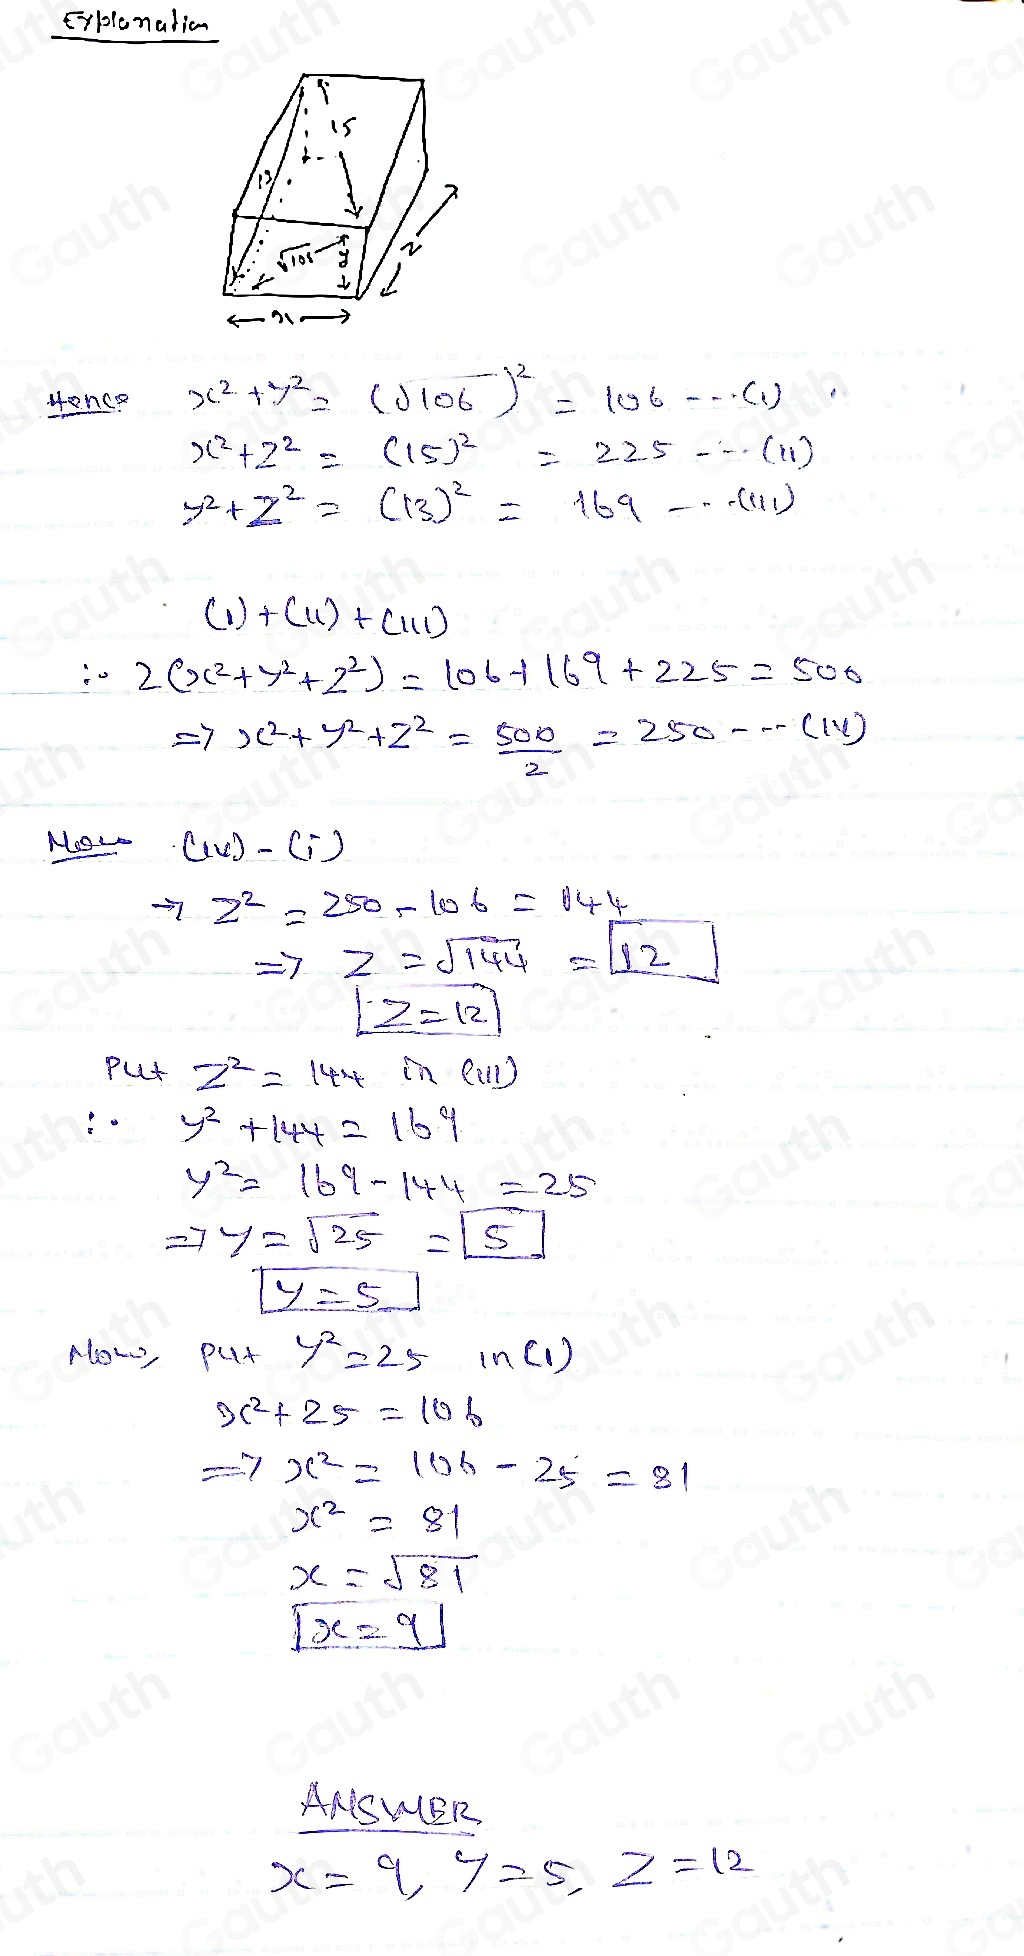 Explanation
15
13
√106
y
z
x
Hence x² + y² = (√106)² = 106 --- (i)
x² + z² = (15)² = 225 --- (ii)
y² + z² = (13)² = 169 --- (iii)
(i) + (ii) + (iii)
∴ 2(x² + y² + z²) = 106 + 169 + 225 = 500
⇒ x² + y² + z² = 500/2 = 250 --- (iv)
Now (iv) - (i)
→ z² = 250 - 106 = 144
⇒ z = √144 = 12
z = 12
Put z² = 144 in (iii)
∴ y² + 144 = 169
y² = 169 - 144 = 25
⇒ y = √25 = 5
y = 5
Now, put y² = 25 in (i)
x² + 25 = 106
⇒ x² = 106 - 25 = 81
x² = 81
x = √81
x = 9
ANSWER
x = 9, y = 5, z = 12
Gauth